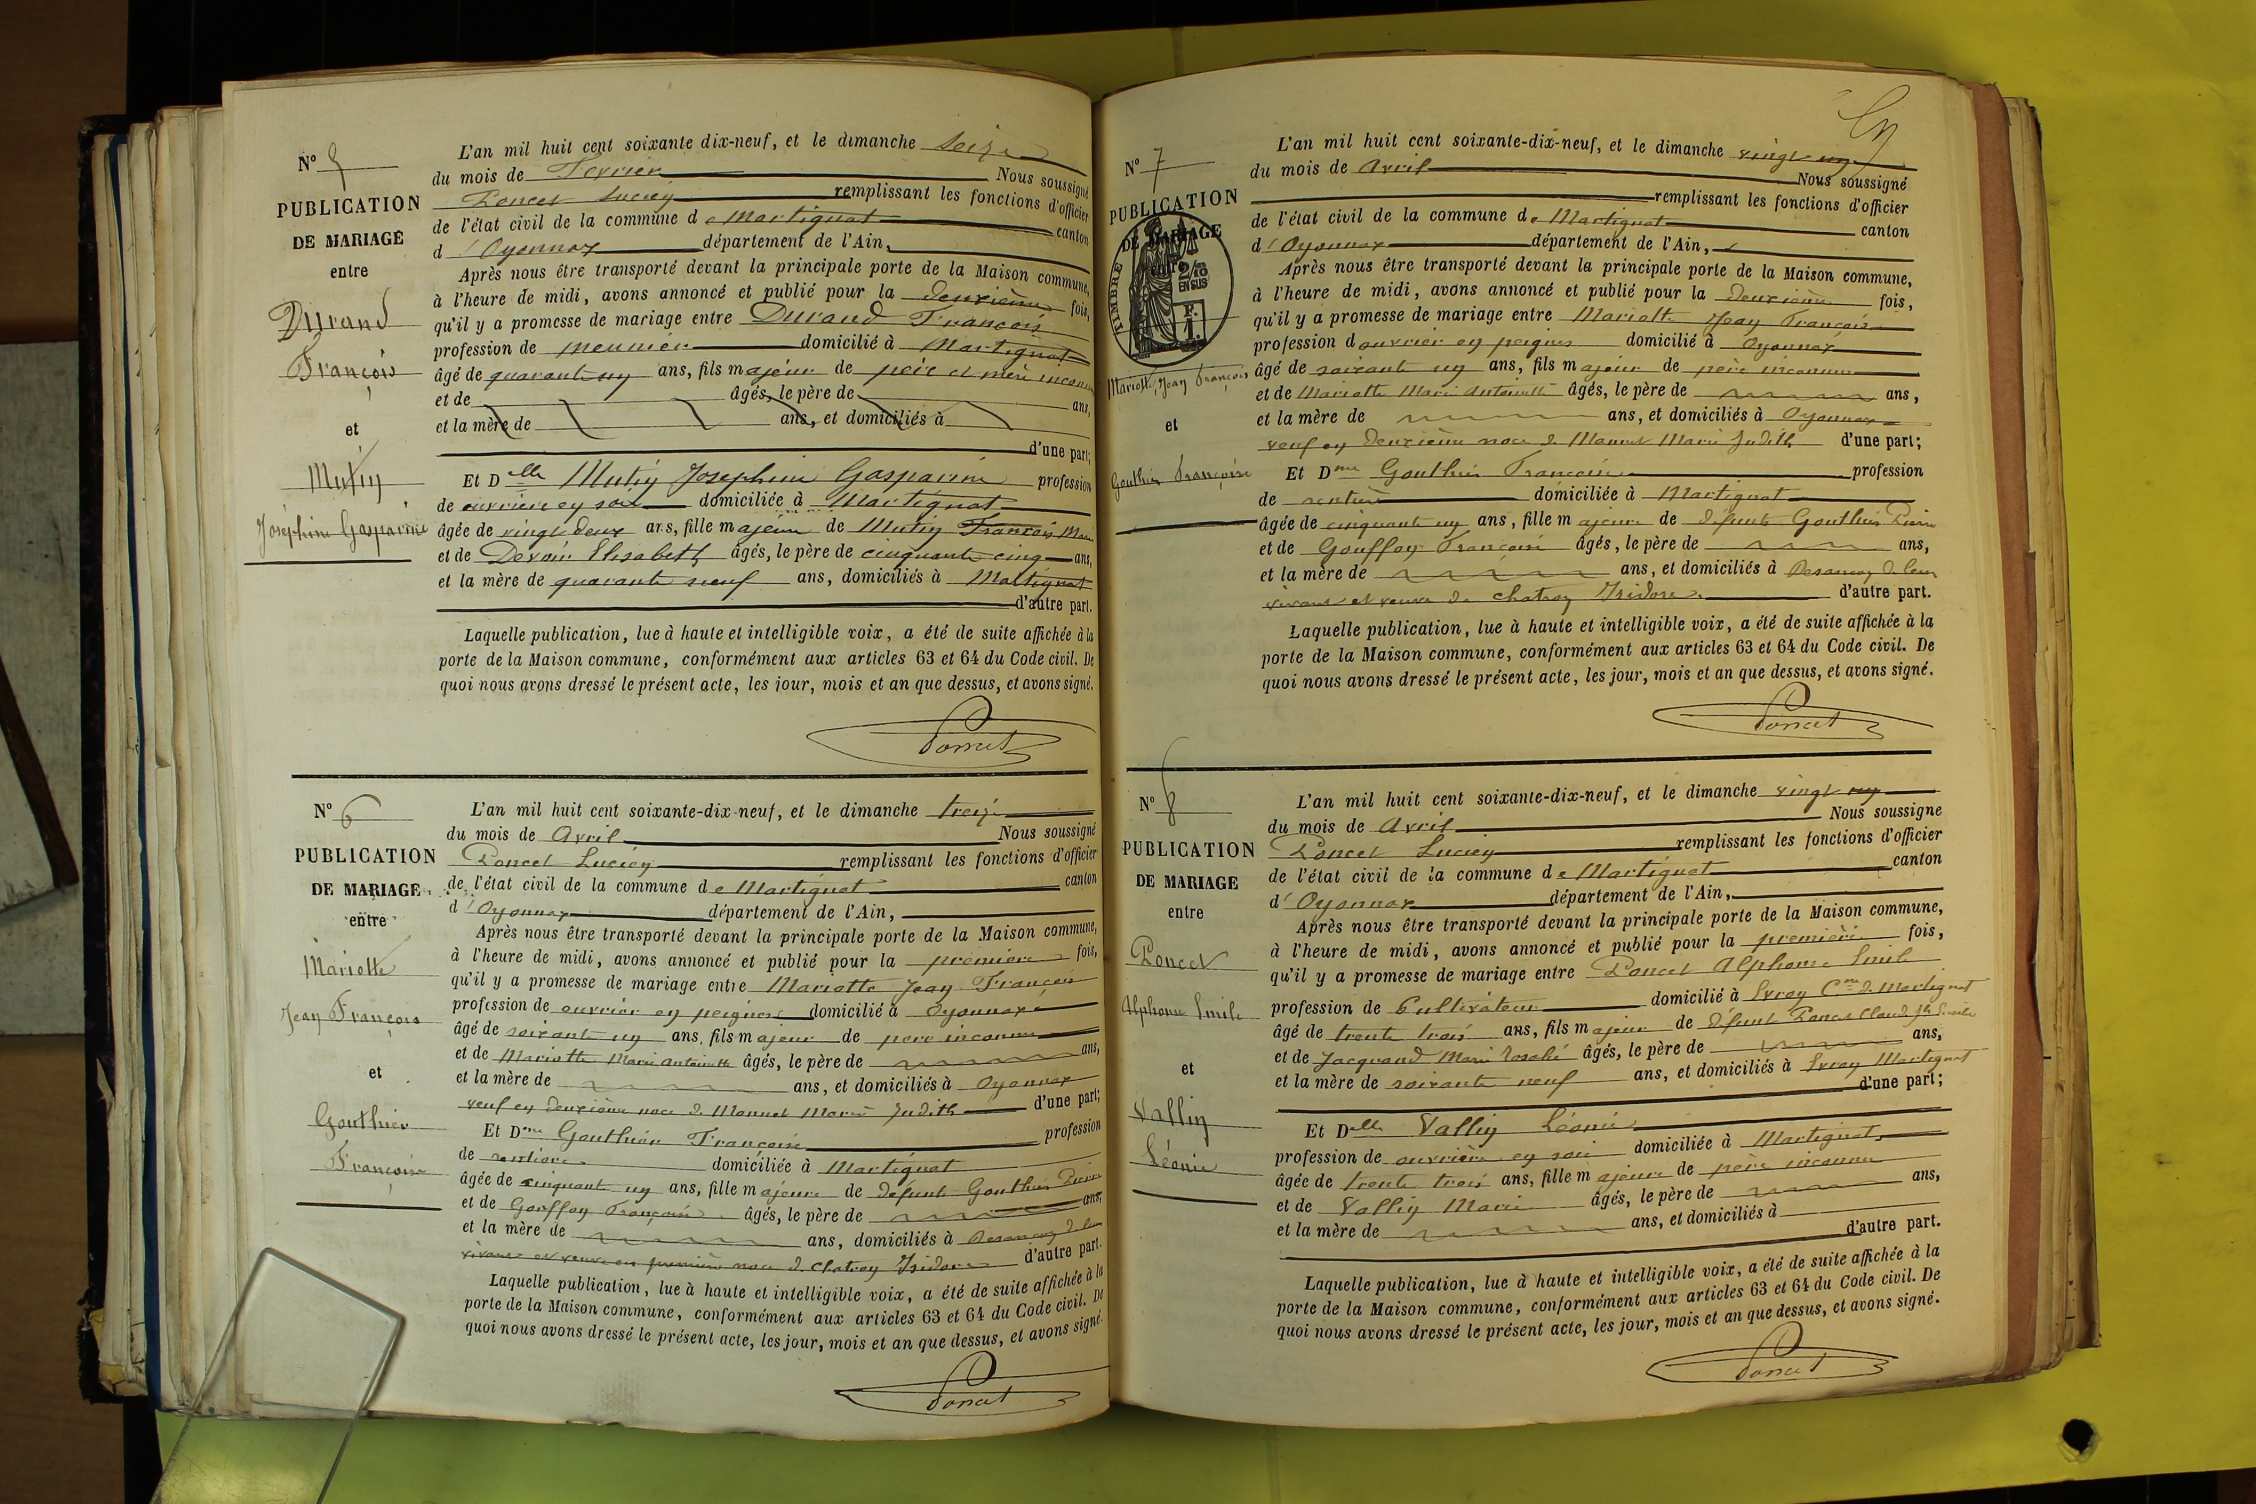 N° 5
PUBLICATION
DE MARIAGE
entre
Durand
François
et
Mutin
Joséphine Gasparine
L'an mil huit cent soixante dix-neuf, et le dimanche seize
du mois de Fevrier Nous soussigné
Poncet Lucien remplissant les fonctions d'officier
de l'état civil de la commune de Martignat canton
d'Oyonnax département de l'Ain,
Après nous être transporté devant la principale porte de la Maison commune,
à l'heure de midi, avons annoncé et publié pour la deuxième fois,
qu'il y a promesse de mariage entre Durand François
profession de meunier domicilié à Martignat
âgé de quarante un ans, fils majeur de père et mère inconnus
et de âgés, le père de ans,
et la mère de ans, et domiciliés à
d'une part;
Et Delle Mutin Josephine Gasparine profession
de ouvrière en soie domiciliée à Martignat
âgée de vingt deux ans, fille majeure de Mutin François Marie
et de Devoir Elisabeth âgés, le père de cinquante cinq ans,
et la mère de quarante neuf ans, domiciliés à Martignat
d'autre part.
Laquelle publication, lue à haute et intelligible voix, a été de suite affichée à la
porte de la Maison commune, conformément aux articles 63 et 64 du Code civil. De
quoi nous avons dressé le présent acte, les jour, mois et an que dessus, et avons signé.
Poncet
N° 6
PUBLICATION
DE MARIAGE
entre
Mariotte
Jean François
et
Gouthier
Françoise
L'an mil huit cent soixante-dix-neuf, et le dimanche treize
du mois de Avril Nous soussigné
Poncet Lucien remplissant les fonctions d'officier
de l'état civil de la commune de Martignat canton
d'Oyonnax département de l'Ain,
Après nous être transporté devant la principale porte de la Maison commune,
à l'heure de midi, avons annoncé et publié pour la première fois,
qu'il y a promesse de mariage entre Mariotte Jean François
profession de ouvrier en peignes domicilié à Oyonnax
âgé de soixante un ans, fils majeur de père inconnu
et de Mariotte Marie Antoinette âgés, le père de ans,
et la mère de ans, et domiciliés à Oyonnax
veuf en deuxième noce de Monnet Marie Judith d'une part;
Et Dme Gouthier Françoise profession
de rentière domiciliée à Martignat
âgée de cinquante un ans, fille majeure de défunts Gouthier Pierre
et de Gouffon Françoise âgés, le père de ans,
et la mère de ans, domiciliés à Besançon de leur
vivant et veuve en première noce de Chatron Isidore d'autre part.
Laquelle publication, lue à haute et intelligible voix, a été de suite affichée à la
porte de la Maison commune, conformément aux articles 63 et 64 du Code civil. De
quoi nous avons dressé le présent acte, les jour, mois et an que dessus, et avons signé.
Poncet
N° 7
PUBLICATION
DE MARIAGE
entre
TIMBRE
2/10
EN SUS
P.
1.
Mariotte Jean François
et
Gouthier Françoise
L'an mil huit cent soixante-dix-neuf, et le dimanche vingt un
du mois de Avril Nous soussigné
remplissant les fonctions d'officier
de l'état civil de la commune de Martignat canton
d'Oyonnax département de l'Ain,
Après nous être transporté devant la principale porte de la Maison commune,
à l'heure de midi, avons annoncé et publié pour la deuxième fois,
qu'il y a promesse de mariage entre Mariotte Jean François
profession d'ouvrier en peignes domicilié à Oyonnax
âgé de soixante un ans, fils majeur de père inconnu
et de Mariotte Marie Antoinette âgés, le père de ans,
et la mère de ans, et domiciliés à Oyonnax
veuf en deuxième noce de Monnet Marie Judith d'une part;
Et Dme Gouthier Françoise profession
de rentière domiciliée à Martignat
âgée de cinquante un ans, fille majeure de défunts Gouthier Pierre
et de Gouffon Françoise âgés, le père de ans,
et la mère de ans, et domiciliés à Besançon de leur
vivant et veuve de Chatron Isidore d'autre part.
Laquelle publication, lue à haute et intelligible voix, a été de suite affichée à la
porte de la Maison commune, conformément aux articles 63 et 64 du Code civil. De
quoi nous avons dressé le présent acte, les jour, mois et an que dessus, et avons signé.
Poncet
N° 8
PUBLICATION
DE MARIAGE
entre
Poncet
Alphonse Emile
et
Vallin
Léonie
L'an mil huit cent soixante-dix-neuf, et le dimanche vingt un
du mois de Avril Nous soussigné
Poncet Lucien remplissant les fonctions d'officier
de l'état civil de la commune de Martignat canton
d'Oyonnax département de l'Ain,
Après nous être transporté devant la principale porte de la Maison commune,
à l'heure de midi, avons annoncé et publié pour la première fois,
qu'il y a promesse de mariage entre Poncet Alphonse Emile
profession de Cultivateur domicilié à Evron Cne de Martignat
âgé de trente trois ans, fils majeur de défunt Poncet Claude Jh
et de Jacquand Marie Rosalie âgés, le père de ans,
et la mère de soixante neuf ans, et domiciliés à Evron Martignat
d'une part;
Et Delle Vallin Léonie
profession de ouvrière en soie domiciliée à Martignat
âgée de trente trois ans, fille majeure de père inconnu
et de Vallin Marie âgés, le père de ans,
et la mère de ans, et domiciliés à
d'autre part.
Laquelle publication, lue à haute et intelligible voix, a été de suite affichée à la
porte de la Maison commune, conformément aux articles 63 et 64 du Code civil. De
quoi nous avons dressé le présent acte, les jour, mois et an que dessus, et avons signé.
Poncet